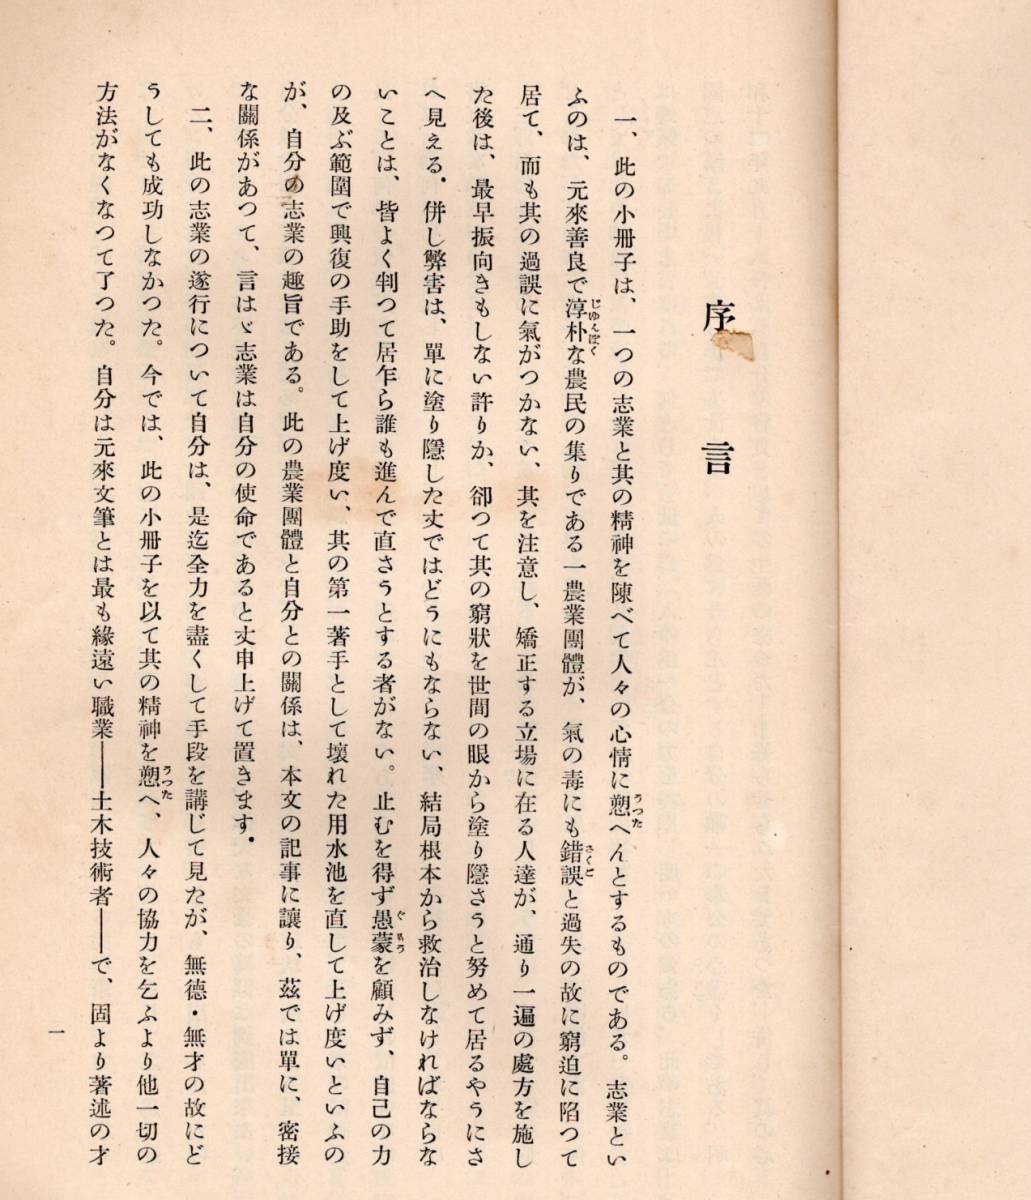 序言
一、此の小册子は、一つの志業と其の精神を陳べて人々の心情に愬へんとするものである。志業とい
ふのは、元來善良で淳朴な農民の集りである一農業團體が、氣の毒にも錯誤と過失の故に窮迫に陷つて
居て、而も其の過誤に氣がつかない、其を注意し、矯正する立場に在る人達が、通り一遍の處方を施し
た後は、最早振向きもしない許りか、卻つて其の窮狀を世間の眼から塗り隱さうと努めて居るやうにさ
へ見える。併し弊害は、單に塗り隱した丈ではどうにもならない、結局根本から救治しなければならな
いことは、皆よく判つて居乍ら誰も進んで直さうとする者がない。止むを得ず愚蒙を顧みず、自己の力
の及ぶ範圍で興復の手助をして上げ度い、其の第一著手として壊れた用水池を直して上げ度いといふの
が、自分の志業の趣旨である。此の農業團體と自分との關係は、本文の記事に讓り、茲では單に、密接
な關係があつて、言はゞ志業は自分の使命であると丈申上げて置きます。
二、此の志業の遂行について自分は、是迄全力を盡くして手段を講じて見たが、無德・無才の故にど
うしても成功しなかつた。今では、此の小册子を以て其の精神を愬へ、人々の協力を乞ふより他一切の
方法がなくなつて了つた。自分は元來文筆とは最も緣遠い職業——土木技術者——で、固より著述の才
一